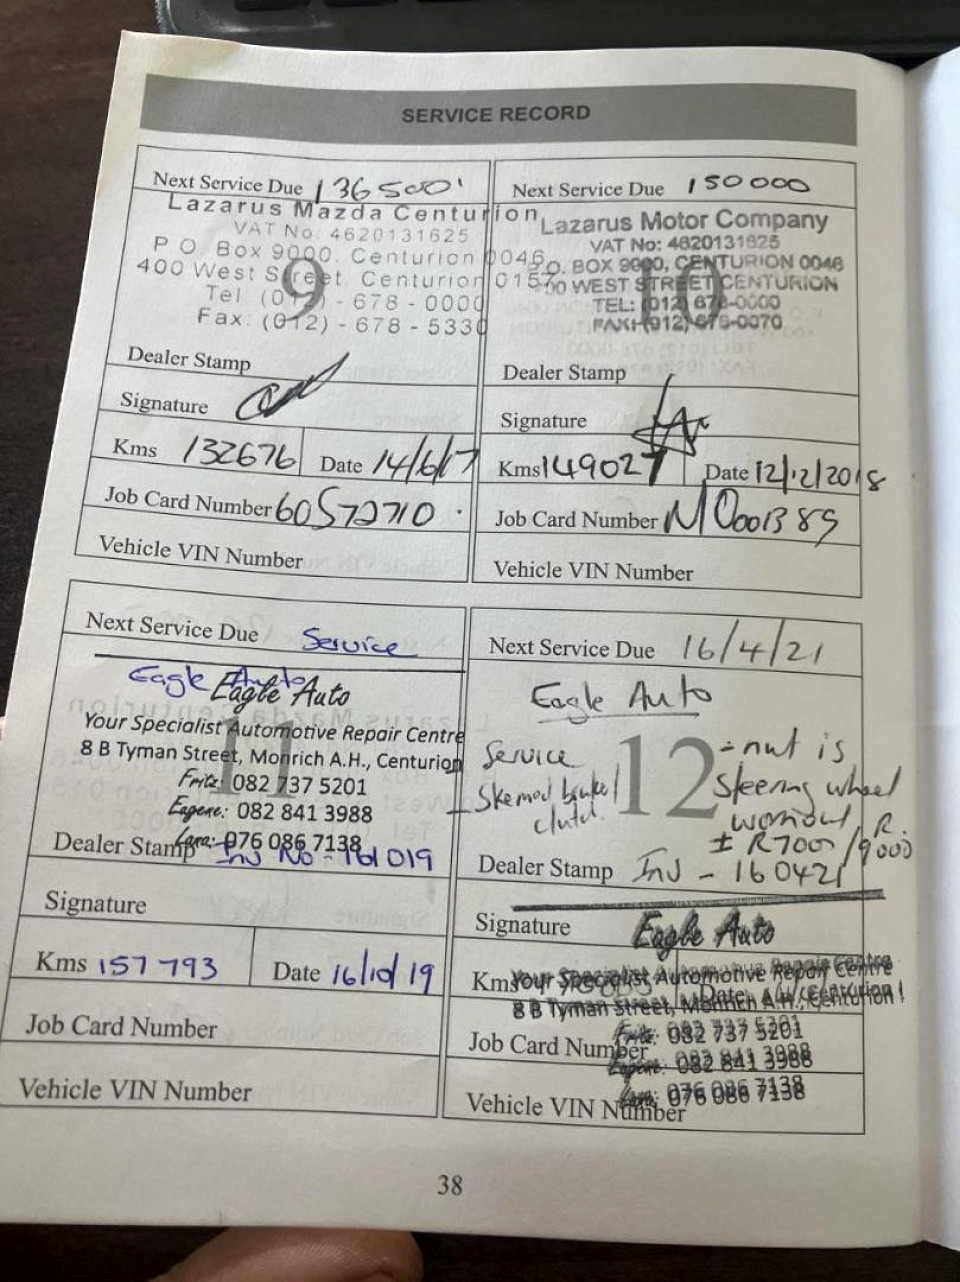 SERVICE RECORD
Next Service Due 136500
Lazarus Mazda Centurion
VAT No: 4620131625
P O Box 9000. Centurion 0046
400 West Street. Centurion 0157
9
Tel (012) - 678 - 0000
Fax: (012) - 678 - 5330
Dealer Stamp
Signature
Kms 132676 Date 14/6/17
Job Card Number 60572710
Vehicle VIN Number
Next Service Due 150000
Lazarus Motor Company
VAT No: 4620131625
P.O. BOX 9000, CENTURION 0046
WEST STREET CENTURION
10
TEL: (012) 678-0000
FAX: (012) 678-0070
Dealer Stamp
Signature
Kms 149027 Date 12/12/2018
Job Card Number
Vehicle VIN Number
Next Service Due Service
Eagle Auto
Eagle Auto
Your Specialist Automotive Repair Centre
8 B Tyman Street, Monrich A.H., Centurion
11
Fritz: 082 737 5201
Eugene: 082 841 3988
Lana: 076 086 7138
Dealer Stamp Inv No - 161019
Signature
Kms 157 793 Date 16/10/19
Job Card Number
Vehicle VIN Number
Next Service Due 16/4/21
Eagle Auto
Service
12
- nut is
steering wheel
wornout
± R7000/R9000
Dealer Stamp Inv - 160421
Signature Eagle Auto
Kms
Your Specialist Automotive Repair Centre
Date
8 B Tyman Street, Monrich A.H., Centurion
Job Card Number
Fritz: 082 737 5201
Eugene: 082 841 3988
Lana: 076 086 7138
Vehicle VIN Number
38